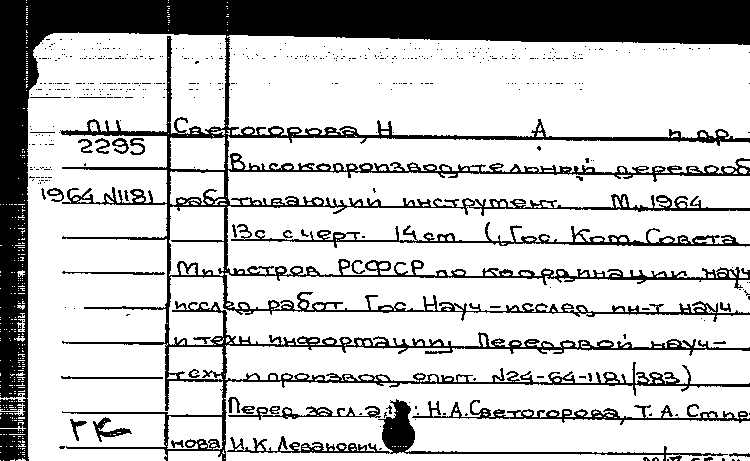 ПП Светогорова, Н А и др.
2295
Высокопроизводительный деревооб
1964 №1181 рабатывающий инструмент. М., 1964.
13с с черт. 14 см. (Гос. Ком. Совета
Министров РСФСР по координации науч
исслед. работ. Гос. Науч.-исслед. ин-т науч.
и техн. информации. Передовой науч-
техн и производ. опыт. №24-64-1181/383)
Перед загл. : Н.А.Светогорова, Т. А.
нова, И.К. Леванович.
ГК